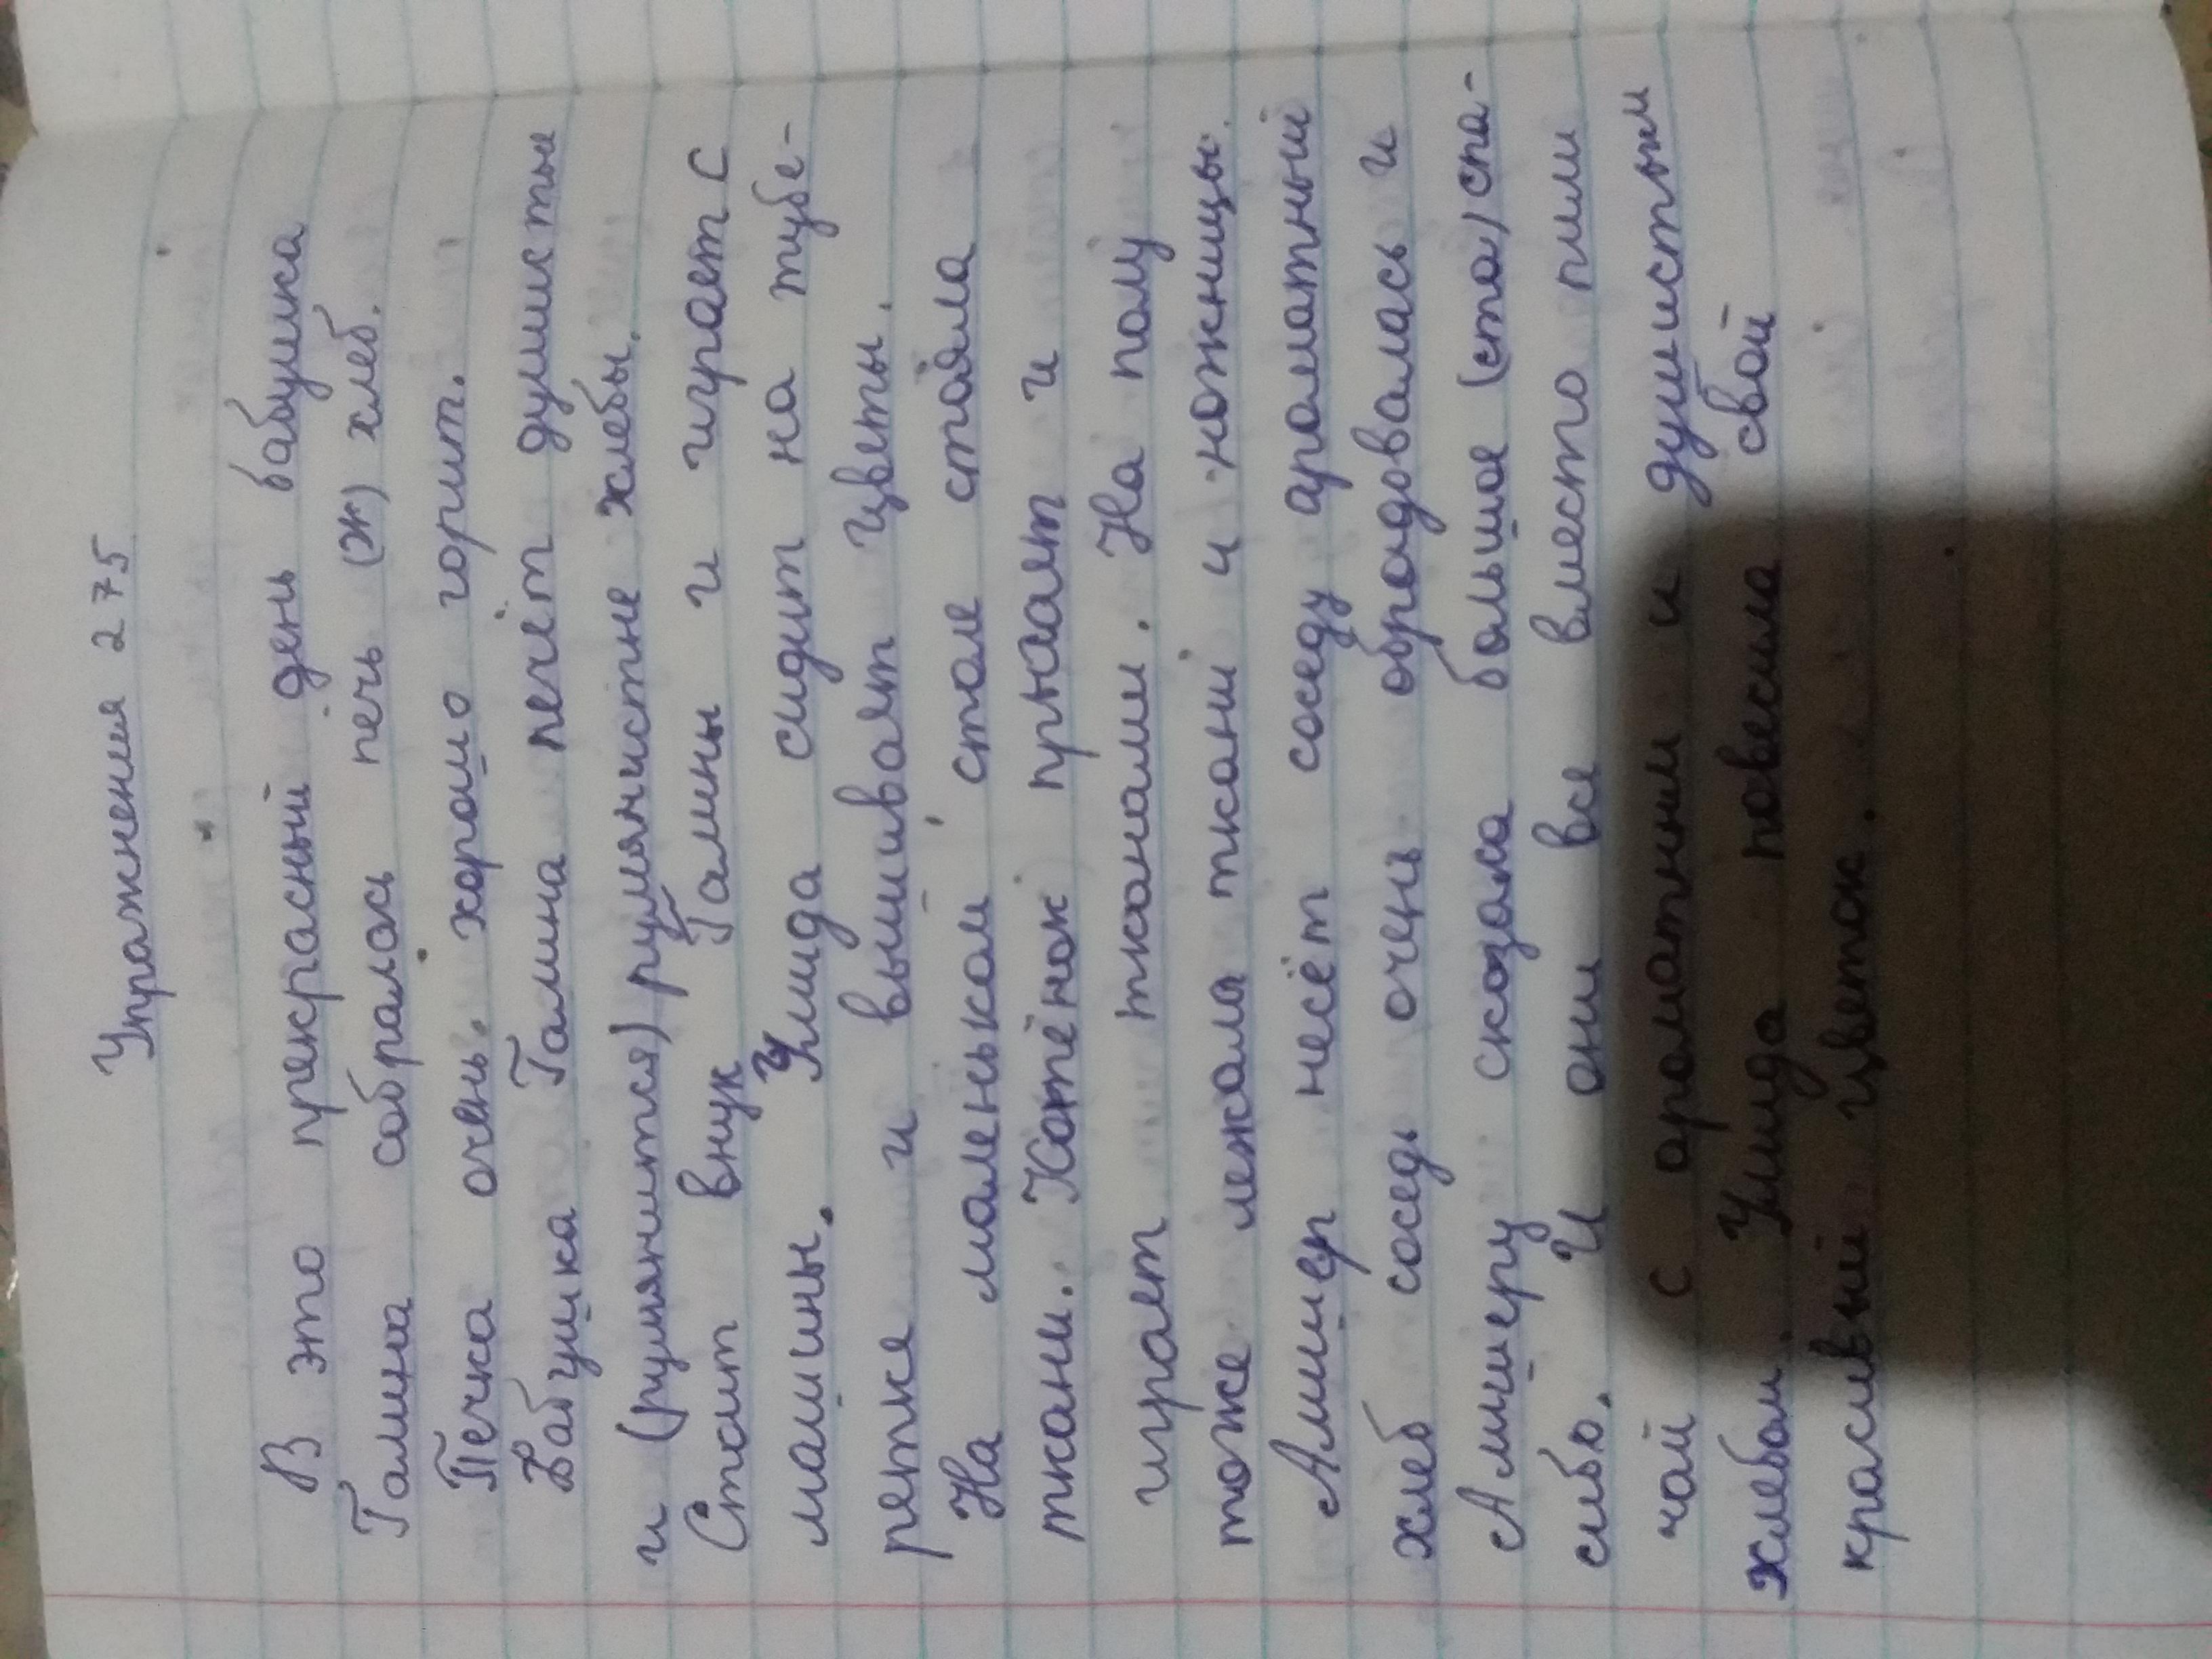 Упражнения 275
В это прекрасный день бабушка
Галина собралась печь (ж) хлеб.
Печка очень хорошо горит.
Бабушка Галина печёт душистые
и (румянится) румянистне хлебы.
Стоит внук Галины и играет с
машины. Улида сидит на тубе-
ретке и вышивоят цветы.
На маленьком столе стояла
ткани. Котёнок прыгает и
играет тканами. На полу
тоже лежала ткани и ножницы.
Алишер несёт соседу ароматный
хлеб соседь очень обрадовалась и
Алишеру сказала большое (спа) спа-
сибо. И они все вместо пили
чай с ароматним и душистым
хлебом. Улида повесила свой
красивый цветок.